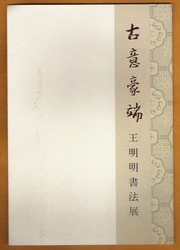 古意豪端
王明明書法展